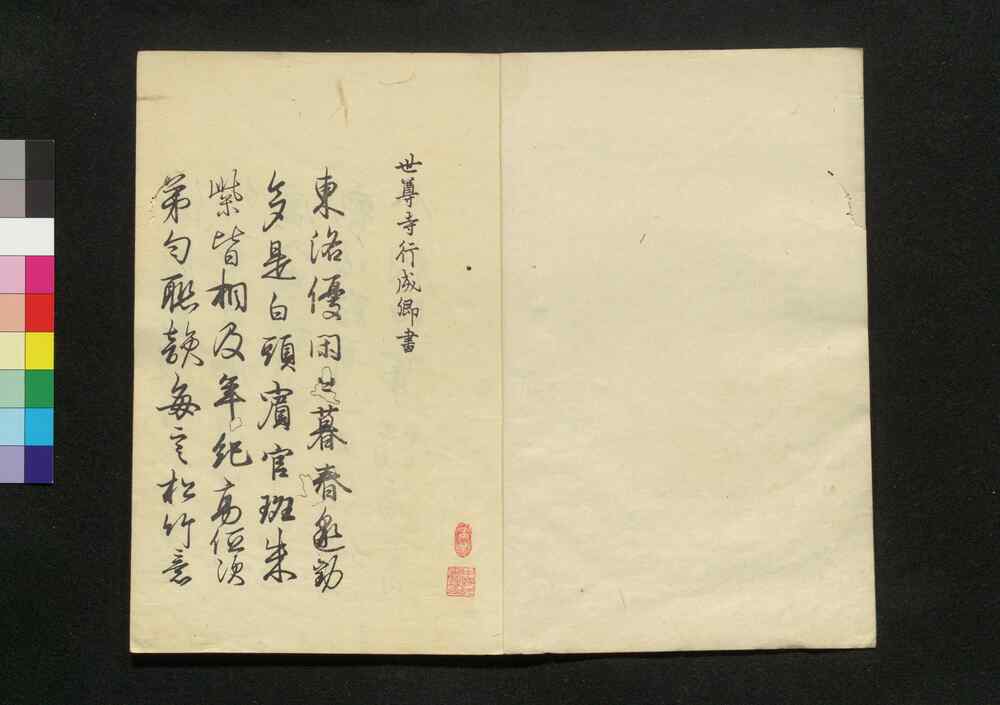 世尊寺行成卿書
東洛優閑日暮春邀歓
多是白頭賓官班朱
紫皆相及年紀高低次
第勻聯韻每言松竹意